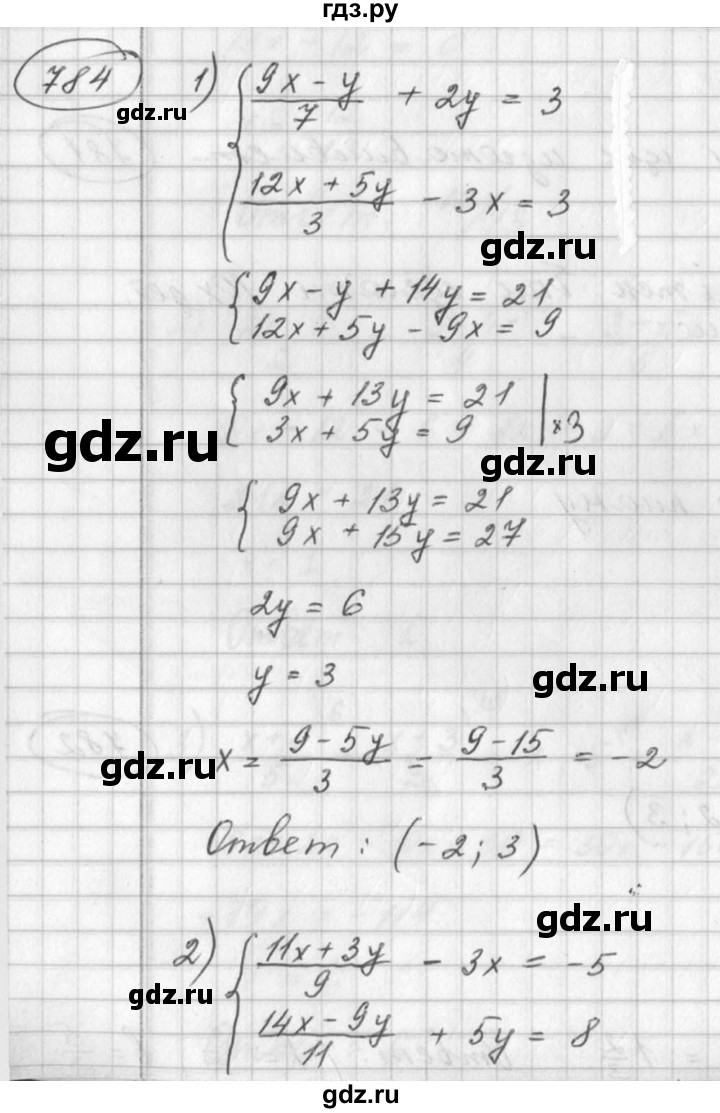 гдз.ру
784 1) { (9x - y)/7 + 2y = 3
gdz.ru
(12x + 5y)/3 - 3x = 3
gdz.ru
{ 9x - y + 14y = 21
12x + 5y - 9x = 9
{ 9x + 13y = 21
3x + 5y = 9 | × 3
gdz.ru
gdz.ru
{ 9x + 13y = 21
9x + 15y = 27
2y = 6
y = 3
gdz.ru
x = (9 - 5y)/3 = (9 - 15)/3 = -2
gdz.ru
Ответ: (-2; 3)
gdz.ru
2) { (11x + 3y)/9 - 3x = -5
gdz.ru
(14x - 9y)/11 + 5y = 8
gdz.ru